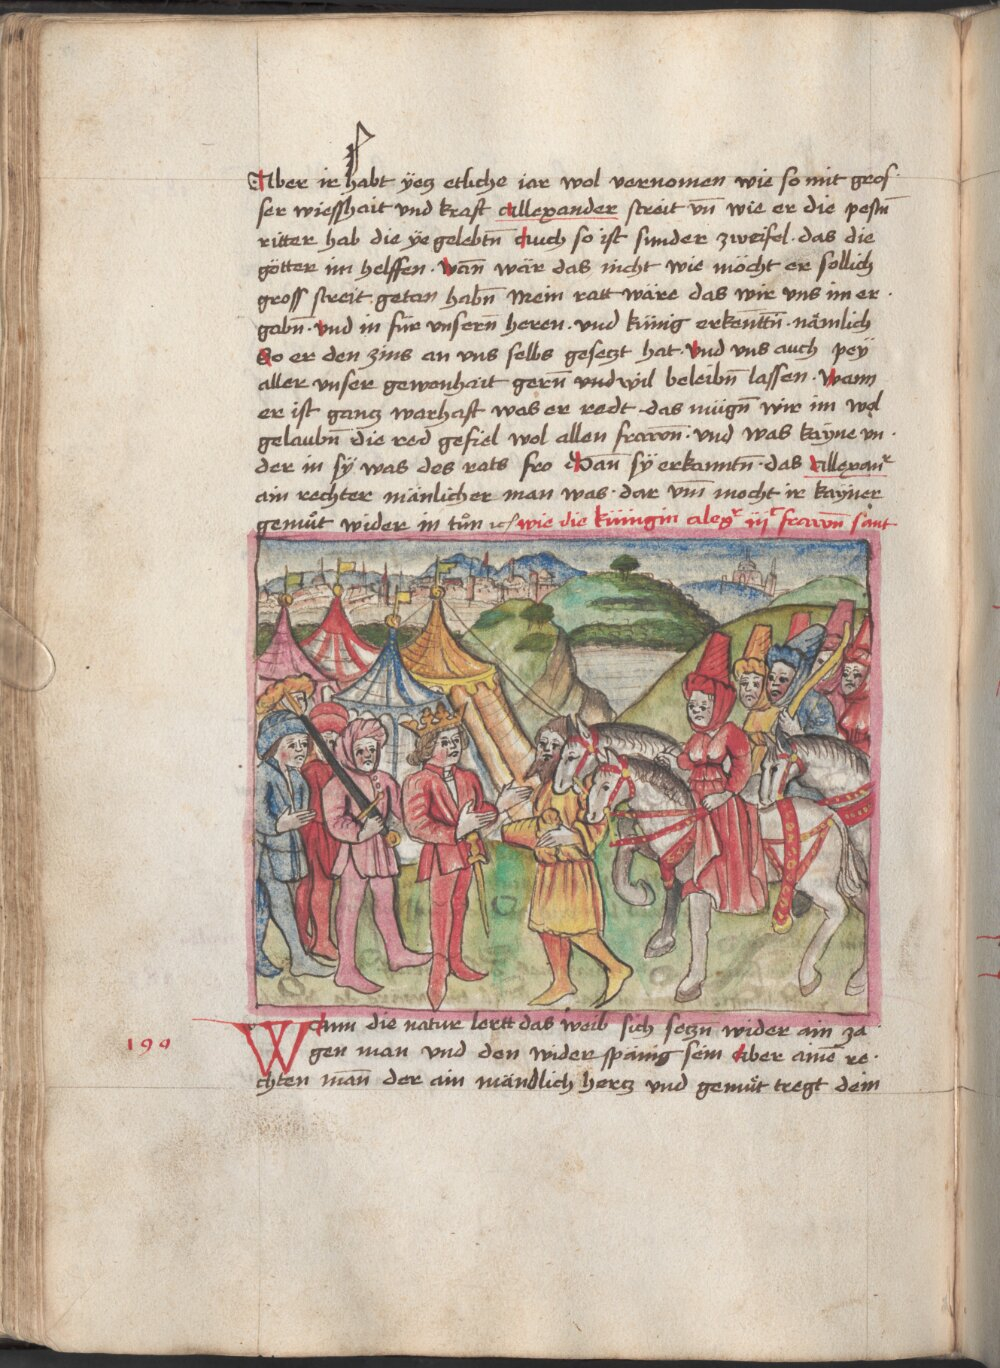 Aber ir habt ÿetz etliche iar wol vernomen wie so mit gros
ser wiesshait vnd kraft allexander streit vn̄ wie er die pestn̄
ritter hab die ÿe gelebtn̄ Auch so ist sunder zweifel · das die
götter im helffen · wan̄ wär das nicht wie möcht er sollich
gross streit getan habn̄ Mein ratt wäre das wir vns im er ·
gabn̄ · vnd in für vnsern̄ heren · vnd künig erkentn̄ · nämlich
So er den zins an vns selbs gesetzt hat · vnd vns auch peÿ
aller vnser gewonhait gern̄ vnd wil beleibn̄ lassen · wann
er ist gantz warhaft was er redt · das mügn̄ wir im wol
gelaubn̄ die red gefiel wol allen frawn̄ · vnd was kayne vn ·
der in sÿ was des rats fro Dan̄ sÿ erkanntn̄ · das allexanr
ain rechter mänlicher man was · dar vm̄ mocht ir kayner
gemuͤt wider in tuͦn ⁊c wie die küngin alexr iijc frawn̄ sant
190
Wann die natur lertt das weib sich setzn wider ain za
gen man vnd den wider spänig sein Aber aine͂ re ·
chten man̄ der ain mändlich hertz vnd gemuͤt tregt dem